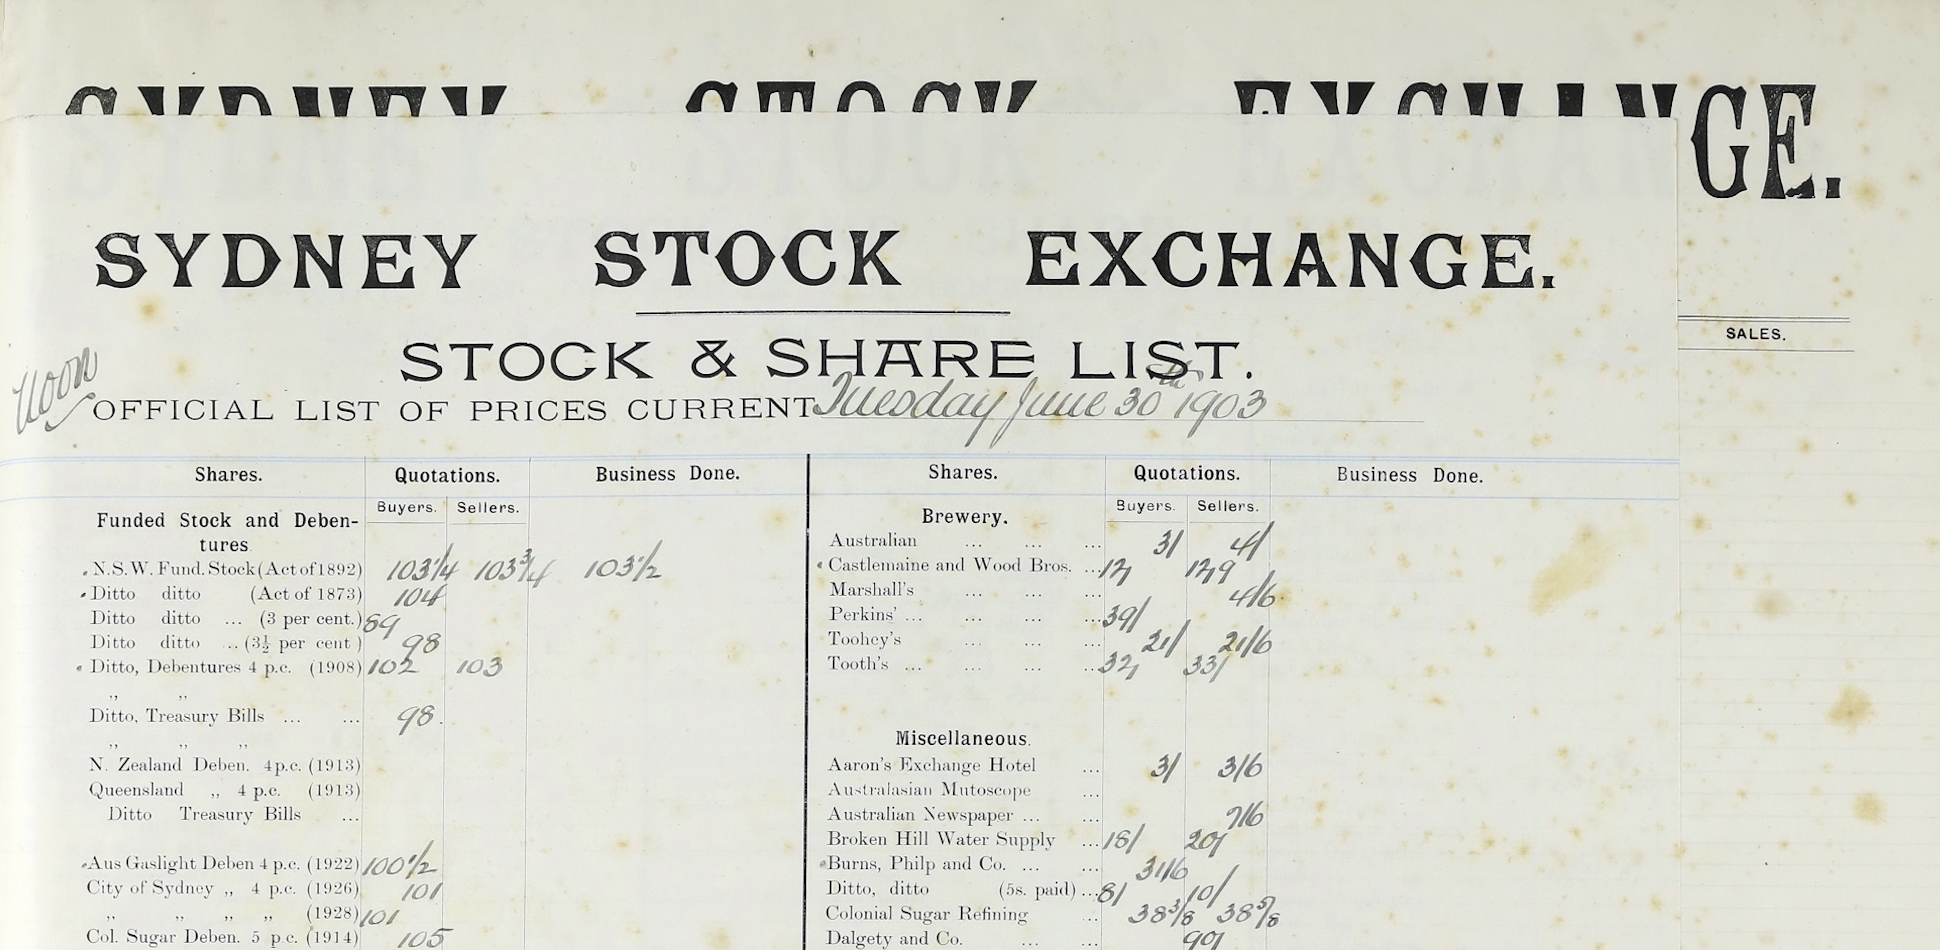 SYDNEY STOCK EXCHANGE.
SYDNEY STOCK EXCHANGE.
SALES.
STOCK & SHARE LIST.
Noon
OFFICIAL LIST OF PRICES CURRENT Tuesday June 30th 1903
Shares. Quotations. Business Done.
Buyers. Sellers.
Funded Stock and Deben-
tures
N.S.W. Fund. Stock (Act of 1892) 103 1/4 103 3/4 103 1/2
Ditto ditto (Act of 1873) 104
Ditto ditto ... (3 per cent.) 89
Ditto ditto ... (3½ per cent) 98
Ditto, Debentures 4 p.c. (1908) 102 103
,, ,,
Ditto, Treasury Bills ... ... 98.
,, ,, ,,
N. Zealand Deben. 4 p.c. (1913)
Queensland ,, 4 p.c. (1913)
Ditto Treasury Bills ...
Aus Gaslight Deben 4 p.c. (1922) 100 1/2
City of Sydney ,, 4 p.c. (1926) 101
,, ,, ,, ,, (1928) 101
Col. Sugar Deben. 5 p.c. (1914) 105
Shares. Quotations. Business Done.
Buyers. Sellers.
Brewery.
Australian ... ... ... 3/ 4/
Castlemaine and Wood Bros. ... 12/ 12/9
Marshall's ... ... ... 4/6
Perkins' ... ... ... ... 39/
Toohey's ... ... ... 21/ 21/6
Tooth's ... ... ... ... 32/ 33/
Miscellaneous.
Aaron's Exchange Hotel ... 3/ 3/6
Australasian Mutoscope ...
Australian Newspaper ... ... 7/6
Broken Hill Water Supply ... 18/ 20/
Burns, Philp and Co. ... ... 31/6
Ditto, ditto (5s. paid) ... 8/ 10/
Colonial Sugar Refining ... 38 3/8 38 5/8
Dalgety and Co. ... ... 90/